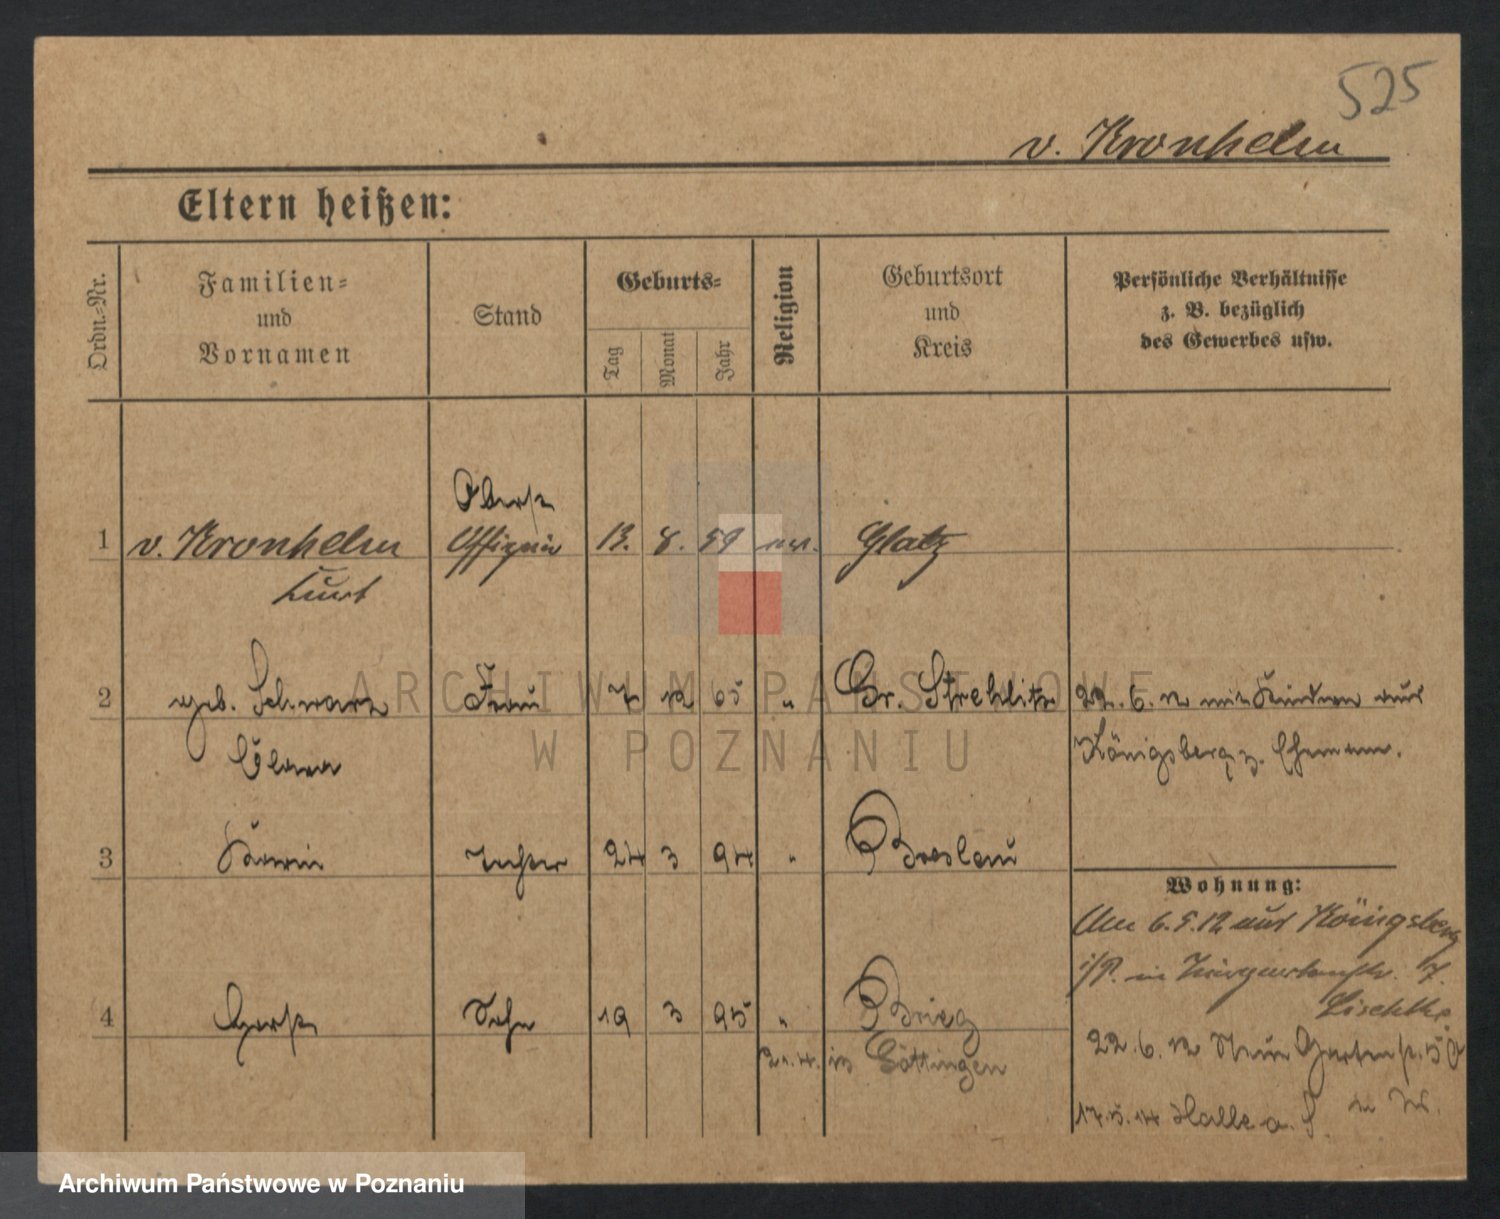 525
v. Kronhelm
Eltern heißen:
Ordn.-Nr.
Familien- und Vornamen
Stand
Geburts-
Tag
Monat
Jahr
Religion
Geburtsort und Kreis
Persönliche Verhältnisse z. B. bezüglich des Gewerbes usw.
Oberst
1 v. Kronhelm Offizier 13. 8. 59 ev. Glatz
Kurt
2 geb. Schwarz Frau 7 12 65 " Gr. Strehlitz 22. 6. 12 mit Kindern aus
Clara Königsberg z. Ehemann.
3 Karin Tochter 24 3 94 " Breslau
Wohnung:
Am 6. 5. 12 aus Königsberg
i/P. in 7.
4 Horst Sohn 19 3 95 " Brieg
22. 6. 12 Neue Gartenstr.
21. 4. in Göttingen
17. 5. 14 Halle a. S.
ARCHIWUM PAŃSTWOWE
W POZNANIU
Archiwum Państwowe w Poznaniu